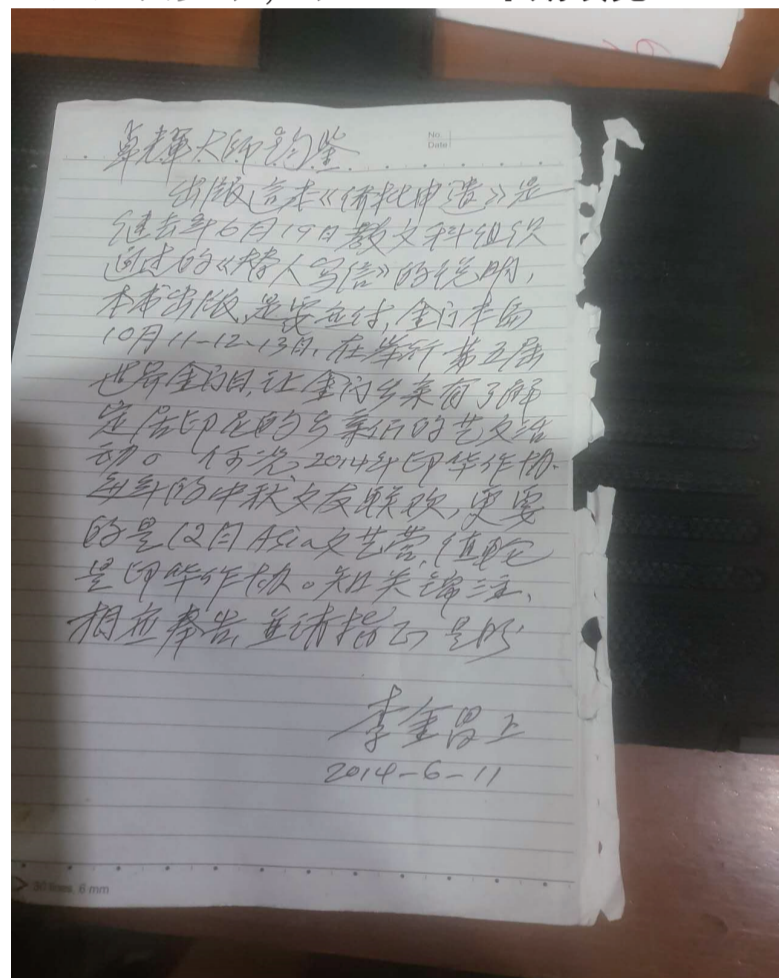 No.
Date
章光華大師鈞鉴
出版這本《侨批申遗》是
继去年6月19日教文科组织
通过的《替人写信》的说明,
本书出版,是要应付,金门本届
10月11-12-13日,在举行第五届
世界金门日,让金门乡亲有了解
定居印尼的乡亲们的艺文活
动。何况2014年印华作协
的中秋文友联欢,更要
的是12月Asia文艺营,值轮
是印华作协。知关锦注、
相应奉告,並请指正是盼
李金昌上
2014-6-11
30 lines, 6 mm